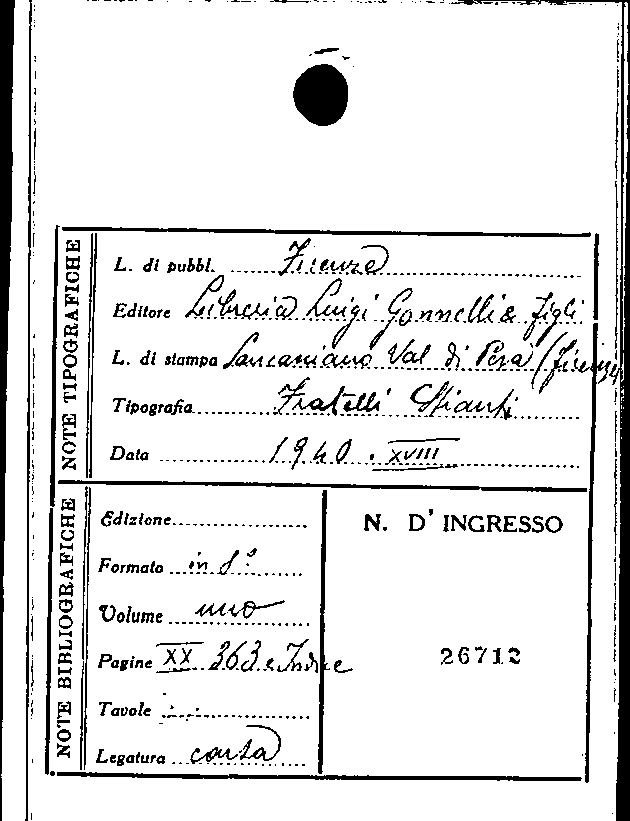 NOTE TIPOGRAFICHE
L. di pubbl. Firenze
Editore Libreria Luigi Gonnelli & Figli
L. di stampa Sancasciano Val di Pesa (Firenze)
Tipografia Fratelli Stianti
Data 1940. XVIII
NOTE BIBLIOGRAFICHE
Edizione
Formato in 8º
Volume uno
Pagine XX 363 e Indice
Tavole
Legatura carta
N. D' INGRESSO
26712